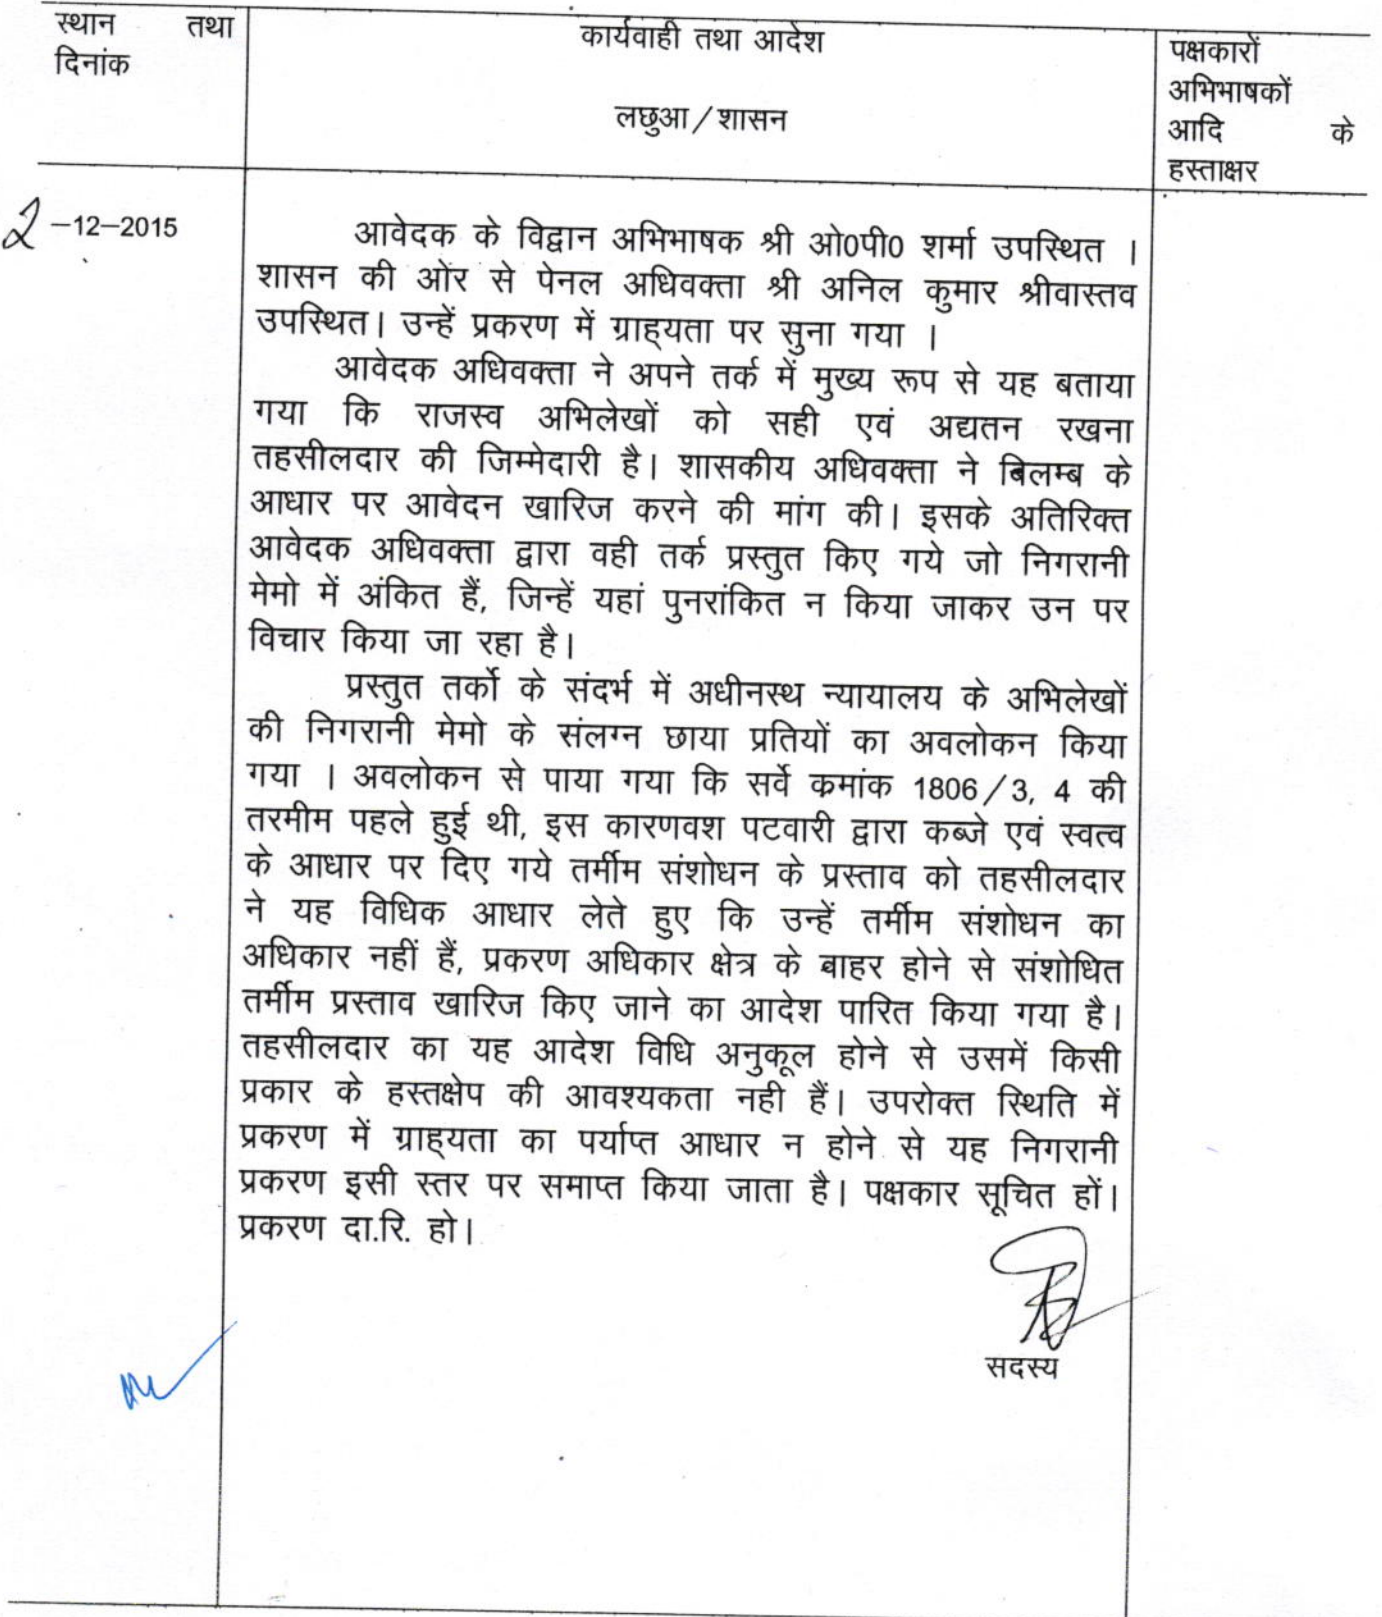 स्थान तथा
दिनांक
कार्यवाही तथा आदेश
लछुआ/शासन
पक्षकारों
अभिभाषकों
आदि के
हस्ताक्षर
2-12-2015
आवेदक के विद्वान अभिभाषक श्री ओ0पी0 शर्मा उपस्थित ।
शासन की ओर से पेनल अधिवक्ता श्री अनिल कुमार श्रीवास्तव
उपस्थित। उन्हें प्रकरण में ग्राह्यता पर सुना गया ।
आवेदक अधिवक्ता ने अपने तर्क में मुख्य रूप से यह बताया
गया कि राजस्व अभिलेखों को सही एवं अद्यतन रखना
तहसीलदार की जिम्मेदारी है। शासकीय अधिवक्ता ने बिलम्ब के
आधार पर आवेदन खारिज करने की मांग की। इसके अतिरिक्त
आवेदक अधिवक्ता द्वारा वही तर्क प्रस्तुत किए गये जो निगरानी
मेमो में अंकित हैं, जिन्हें यहां पुनरांकित न किया जाकर उन पर
विचार किया जा रहा है।
प्रस्तुत तर्को के संदर्भ में अधीनस्थ न्यायालय के अभिलेखों
की निगरानी मेमो के संलग्न छाया प्रतियों का अवलोकन किया
गया । अवलोकन से पाया गया कि सर्वे कमांक 1806/3, 4 की
तरमीम पहले हुई थी, इस कारणवश पटवारी द्वारा कब्जे एवं स्वत्व
के आधार पर दिए गये तर्मीम संशोधन के प्रस्ताव को तहसीलदार
ने यह विधिक आधार लेते हुए कि उन्हें तर्मीम संशोधन का
अधिकार नहीं हैं, प्रकरण अधिकार क्षेत्र के बाहर होने से संशोधित
तर्मीम प्रस्ताव खारिज किए जाने का आदेश पारित किया गया है।
तहसीलदार का यह आदेश विधि अनुकूल होने से उसमें किसी
प्रकार के हस्तक्षेप की आवश्यकता नही हैं। उपरोक्त स्थिति में
प्रकरण में ग्राह्यता का पर्याप्त आधार न होने से यह निगरानी
प्रकरण इसी स्तर पर समाप्त किया जाता है। पक्षकार सूचित हों।
प्रकरण दा.रि. हो।
सदस्य